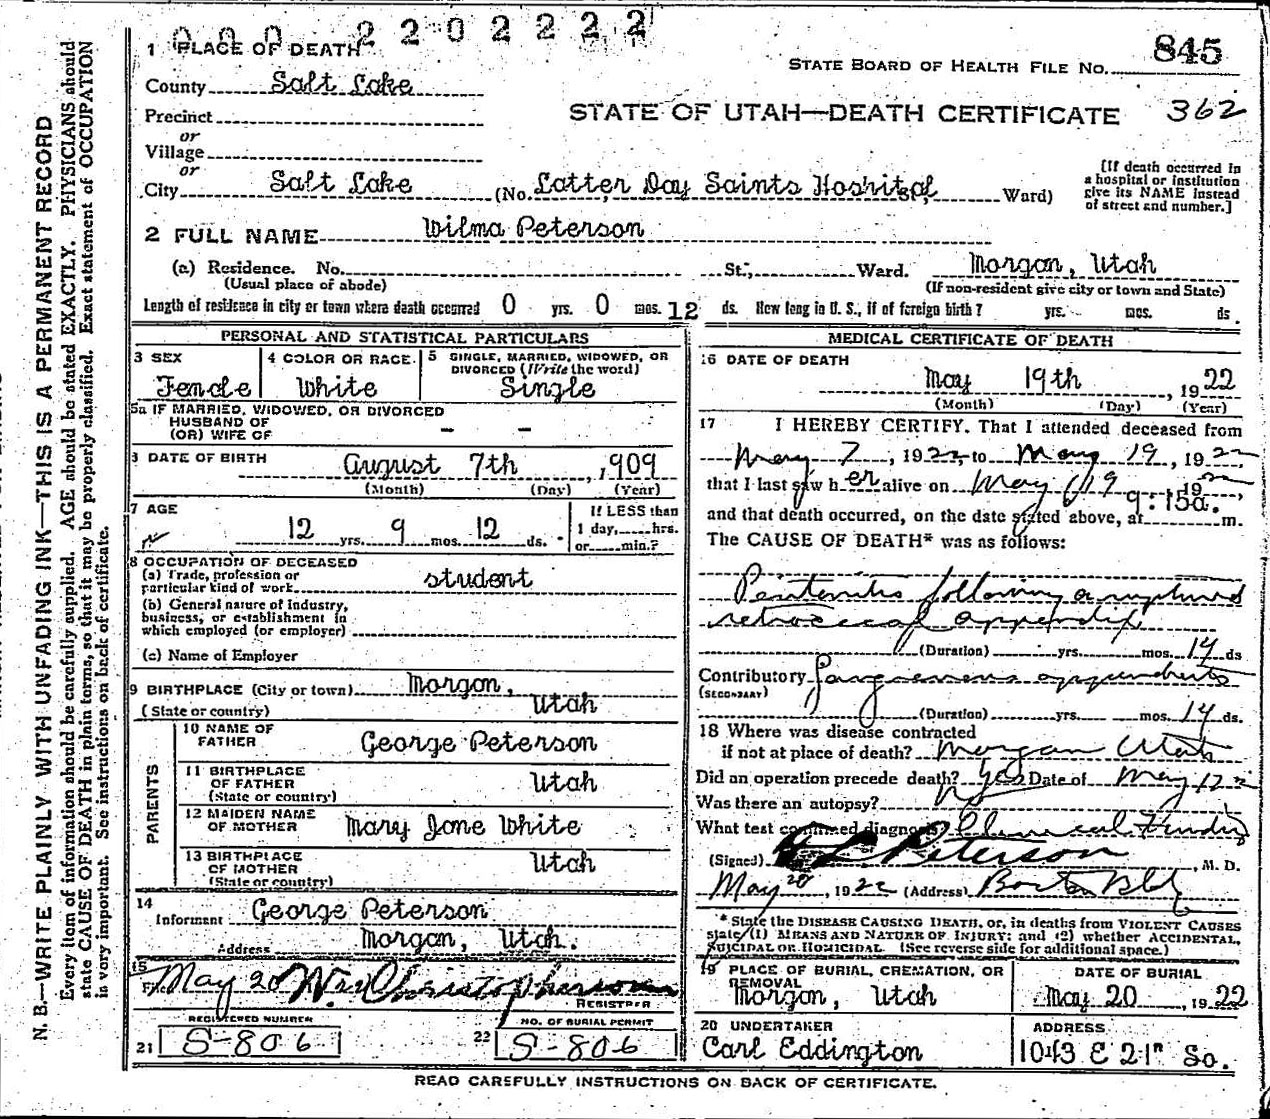 000 2202222
845
STATE BOARD OF HEALTH FILE NO.
1 PLACE OF DEATH
County Salt Lake
STATE OF UTAH—DEATH CERTIFICATE 362
Precinct
or
Village
or
City Salt Lake (No. Latter Day Saints Hospital, Ward)
[If death occurred in
a hospital or institution
give its NAME instead
of street and number.]
2 FULL NAME Wilma Peterson
(a) Residence. No. St., Ward. Morgan, Utah
(Usual place of abode) (If non-resident give city or town and State)
Length of residence in city or town where death occurred 0 yrs. 0 mos. 12 ds. How long in U. S., if of foreign birth? yrs. mos. ds.
PERSONAL AND STATISTICAL PARTICULARS
3 SEX
Female
4 COLOR OR RACE
White
5 SINGLE, MARRIED, WIDOWED, OR
DIVORCED (Write the word)
Single
5a IF MARRIED, WIDOWED, OR DIVORCED
HUSBAND OF
(OR) WIFE OF - -
DATE OF BIRTH
August 7th, 1909
(Month) (Day) (Year)
7 AGE
12 yrs. 9 mos. 12 ds.
If LESS than
1 day, hrs.
or min.?
8 OCCUPATION OF DECEASED
(a) Trade, profession or
particular kind of work student
(b) General nature of Industry,
business, or establishment in
which employed (or employer)
(c) Name of Employer
9 BIRTHPLACE (City or town) Morgan,
(State or country) Utah
PARENTS
10 NAME OF
FATHER George Peterson
11 BIRTHPLACE
OF FATHER Utah
(State or country)
12 MAIDEN NAME
OF MOTHER Mary Jane White
13 BIRTHPLACE
OF MOTHER Utah
(State or country)
14
Informant George Peterson
Address Morgan, Utah.
15
May 20 Wm Christopherson
REGISTRAR
REGISTERED NUMBER
21 S-806
NO. OF BURIAL PERMIT
22 S-806
MEDICAL CERTIFICATE OF DEATH
16 DATE OF DEATH
May 19th, 1922
(Month) (Day) (Year)
17 I HEREBY CERTIFY, That I attended deceased from
May 7, 1922, to May 19, 1922,
that I last saw her alive on May 19 1922,
and that death occurred, on the date stated above, at 9:15a. m.
The CAUSE OF DEATH* was as follows:
Peritonitis following a ruptured
retrocecal appendix
(Duration) yrs. mos. 14 ds
Contributory gangrenous appendicitis
(SECONDARY)
(Duration) yrs. mos. 14 ds.
18 Where was disease contracted
if not at place of death? Morgan Utah
Did an operation precede death? yes Date of May 12
Was there an autopsy? No
What test confirmed diagnosis? Clinical Finding
(Signed) L Peterson, M. D.
May 20, 1922 (Address) Boston Bldg
* State the DISEASE CAUSING DEATH, or, in deaths from VIOLENT CAUSES
state (1) MEANS AND NATURE OF INJURY; and (2) whether ACCIDENTAL,
SUICIDAL OR HOMICIDAL. (See reverse side for additional space.)
19 PLACE OF BURIAL, CREMATION, OR
REMOVAL
Morgan, Utah
DATE OF BURIAL
May 20, 1922
20 UNDERTAKER
Carl Eddington
ADDRESS
1043 E 21" So.
READ CAREFULLY INSTRUCTIONS ON BACK OF CERTIFICATE.
N. B.—WRITE PLAINLY WITH UNFADING INK—THIS IS A PERMANENT RECORD
Every item of information should be carefully supplied. AGE should be stated EXACTLY. PHYSICIANS should
state CAUSE OF DEATH in plain terms, so that it may be properly classified. Exact statement of OCCUPATION
is very important. See instructions on back of certificate.